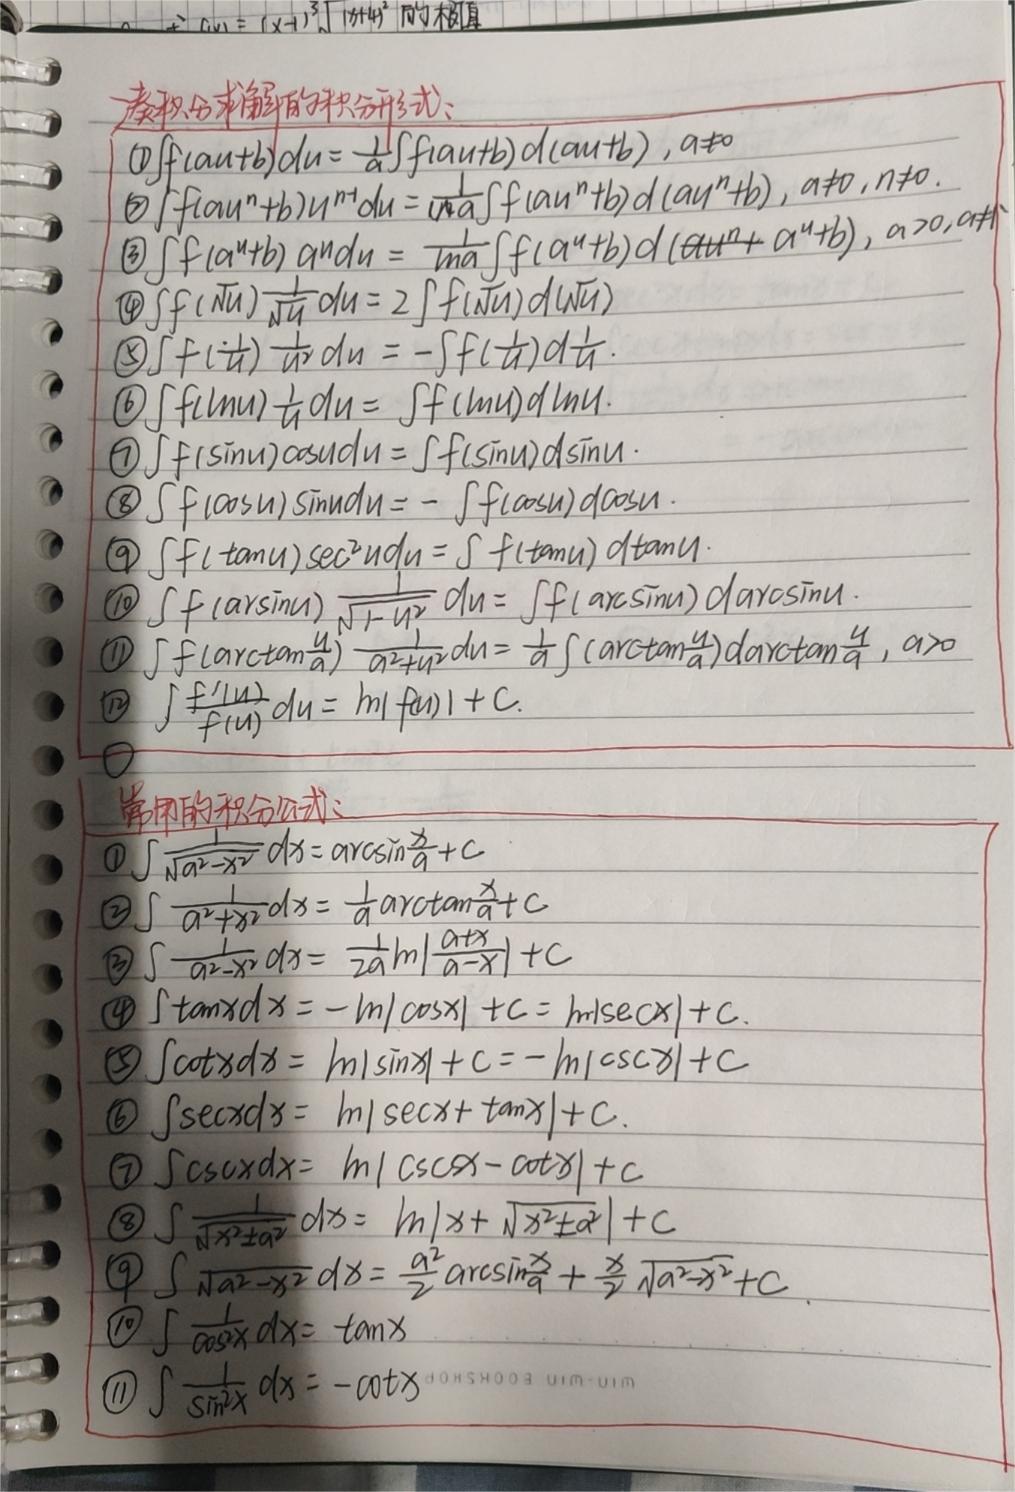 f(x) = (x-1)³√(x+4)² 的极值
凑积分求解的积分形式:
① ∫f(au+b)du = 1/a ∫f(au+b)d(au+b), a≠0
② ∫f(auⁿ+b)uⁿ⁻¹du = 1/(na) ∫f(auⁿ+b)d(auⁿ+b), a≠0, n≠0.
③ ∫f(aᵘ+b) aᵘdu = 1/lna ∫f(aᵘ+b)d(aᵘ+b), a>0, a≠1
④ ∫f(√u) 1/√u du = 2∫f(√u)d(√u)
⑤ ∫f(1/u) 1/u² du = -∫f(1/u)d 1/u.
⑥ ∫f(lnu) 1/u du = ∫f(lnu)dlnu.
⑦ ∫f(sinu)cosudu = ∫f(sinu)dsinu.
⑧ ∫f(cosu)sinudu = -∫f(cosu)dcosu.
⑨ ∫f(tanu)sec²udu = ∫f(tanu)dtanu.
⑩ ∫f(arsinu) 1/√(1-u²) du = ∫f(arcsinu)darcsinu.
⑪ ∫f(arctan u/a) 1/(a²+u²) du = 1/a ∫(arctan u/a)darctan u/a, a>0
⑫ ∫ f'(u)/f(u) du = ln|f(u)|+C.
常用的积分公式:
① ∫ 1/√(a²-x²) dx = arcsin x/a + C
② ∫ 1/(a²+x²) dx = 1/a arctan x/a + C
③ ∫ 1/(a²-x²) dx = 1/2a ln|(a+x)/(a-x)| + C
④ ∫tanxdx = -ln|cosx| + C = ln|secx| + C.
⑤ ∫cotxdx = ln|sinx| + C = -ln|cscx| + C
⑥ ∫secxdx = ln|secx+tanx| + C.
⑦ ∫cscxdx = ln|cscx-cotx| + C
⑧ ∫ 1/√(x²±a²) dx = ln|x+√(x²±a²)| + C
⑨ ∫√(a²-x²) dx = a²/2 arcsin x/a + x/2 √(a²-x²) + C
⑩ ∫ 1/cos²x dx = tanx
⑪ ∫ 1/sin²x dx = -cotx
WIN-WIN BOOKSHOP